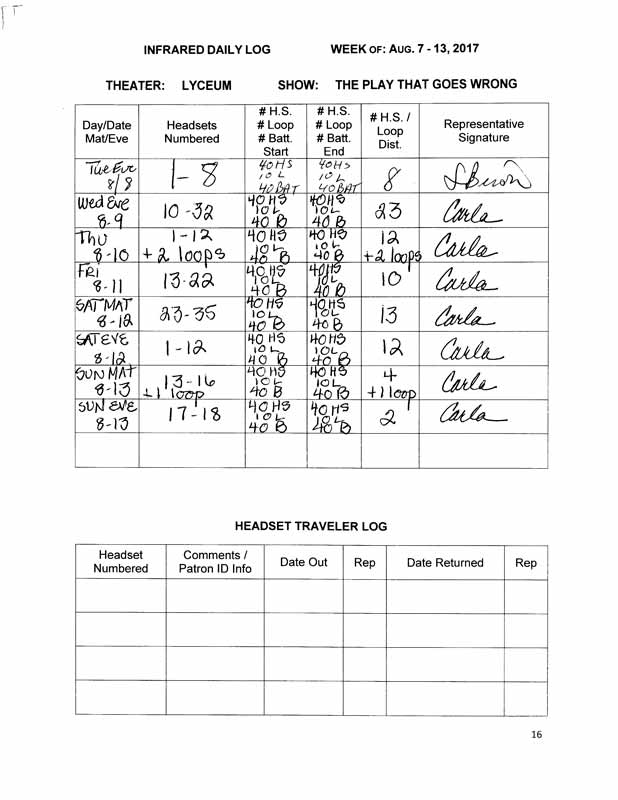 INFRARED DAILY LOG WEEK OF: AUG. 7 - 13, 2017
THEATER: LYCEUM SHOW: THE PLAY THAT GOES WRONG
Day/Date Mat/Eve Headsets Numbered # H.S. # Loop # Batt. Start # H.S. # Loop # Batt. End # H.S. / Loop Dist. Representative Signature
Tue Eve 8/8 1-8 40HS 10 L 40BAT 40HS 10 L 40BAT 8
Wed Eve 8-9 10-32 40 HS 10L 40 B 40HS 10L 40 B 23 Carla
Thu 8-10 1-12 +2 loops 40 HS 10L 40 B 40 HS 10L 40 B 12 +2 loops Carla
FRI 8-11 13-22 40 HS 10L 40 B 40HS 10L 40 B 10 Carla
SAT MAT 8-12 23-35 40 HS 10L 40 B 40HS 10L 40 B 13 Carla
SAT EVE 8-12 1-12 40 HS 10 L 40 B 40HS 10L 40 B 12 Carla
SUN MAT 8-13 13-16 +1 loop 40 HS 10L 40 B 40 HS 10L 40 B 4 +1 loop Carla
SUN EVE 8-13 17-18 40 HS 10L 40 B 40 HS 10L 40 B 2 Carla
HEADSET TRAVELER LOG
Headset Numbered Comments / Patron ID Info Date Out Rep Date Returned Rep
16